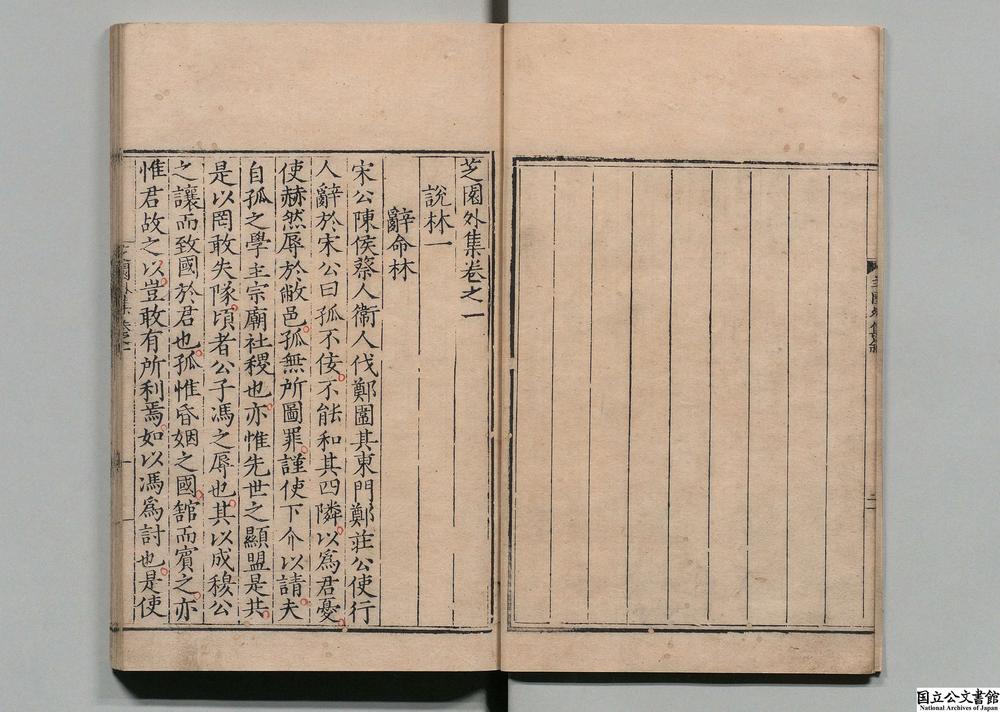 芝園外集卷之一
說林一
辭命林
宋公陳侯蔡人衞人伐鄭圍其東門鄭莊公使行
人辭於宋公曰孤不佞不能和其四隣以爲君憂
使赫然辱於敝邑孤無所圖罪謹使下介以請夫
自孤之學主宗廟社稷也亦惟先世之顯盟是共
是以罔敢失隊頃者公子馮之辱也其以成穆公
之讓而致國於君也孤惟昏姻之國舘而賓之亦
惟君故之以豈敢有所利焉如以馮爲討也是使
芝園外集卷一
国立公文書館
National Archives of Japan